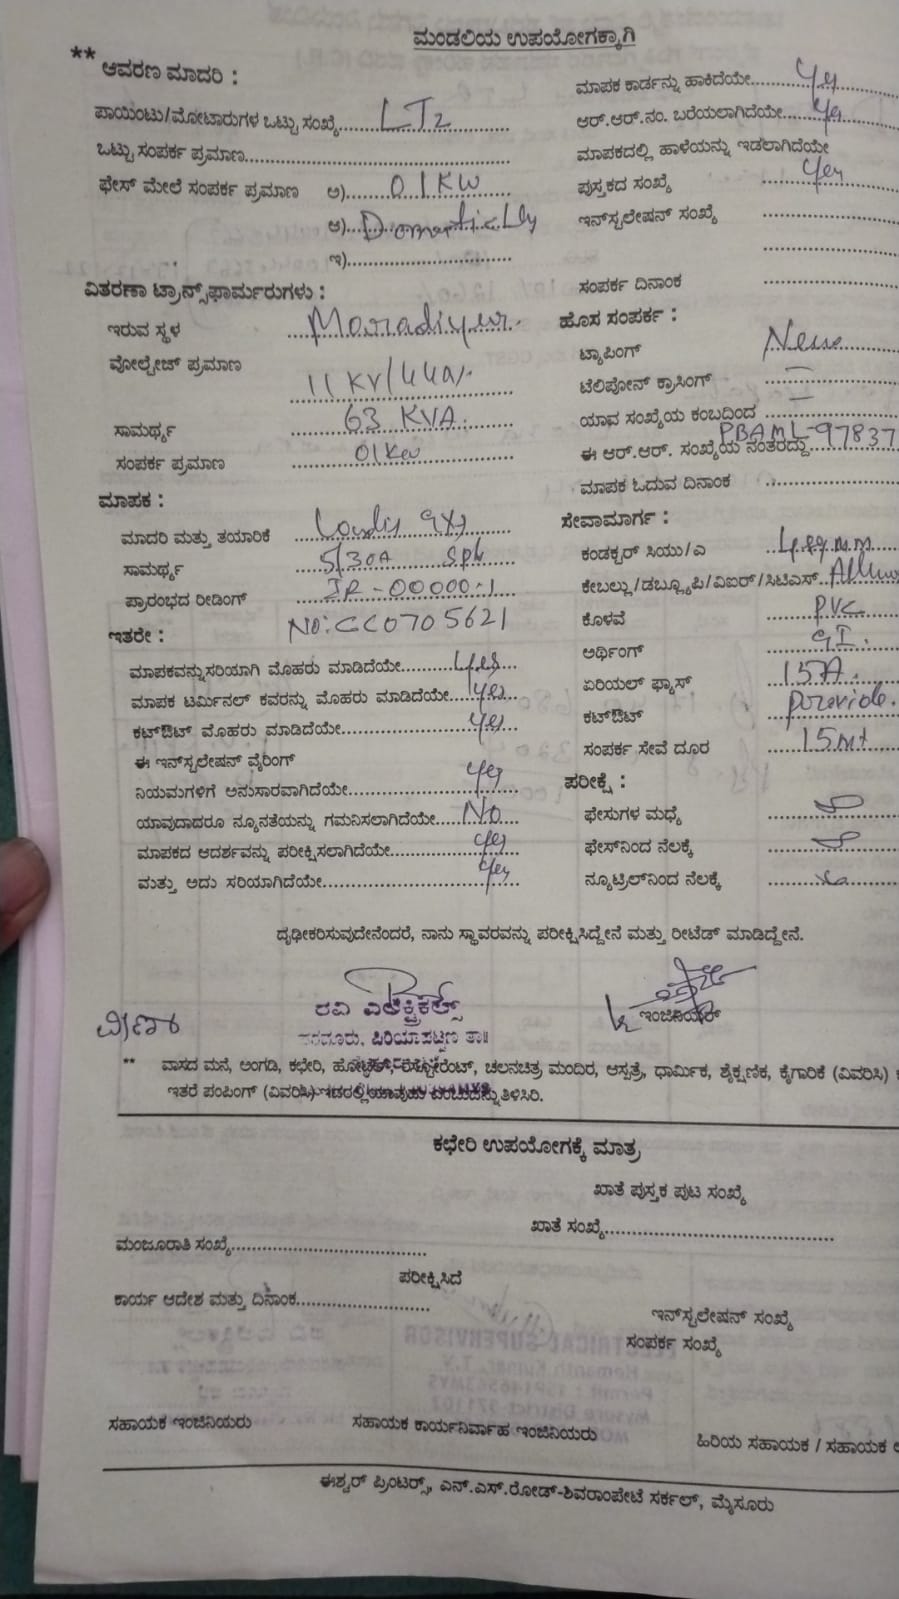 ಮಂಡಲಿಯ ಉಪಯೋಗಕ್ಕಾಗಿ
** ಆವರಣ ಮಾದರಿ :
ಪಾಯಿಂಟು/ಮೋಟಾರುಗಳ ಒಟ್ಟು ಸಂಖ್ಯೆ LT2
ಒಟ್ಟು ಸಂಪರ್ಕ ಪ್ರಮಾಣ
ಫೇಸ್ ಮೇಲೆ ಸಂಪರ್ಕ ಪ್ರಮಾಣ ಅ) 01KW
ಆ)
ಇ)
ವಿತರಣಾ ಟ್ರಾನ್ಸ್‌ಫಾರ್ಮರುಗಳು :
ಇರುವ ಸ್ಥಳ
ವೋಲ್ಟೇಜ್ ಪ್ರಮಾಣ 11KV/440v.
ಸಾಮರ್ಥ್ಯ 63 KVA.
ಸಂಪರ್ಕ ಪ್ರಮಾಣ 01Kw
ಮಾಪಕ :
ಮಾದರಿ ಮತ್ತು ತಯಾರಿಕೆ
ಸಾಮರ್ಥ್ಯ 5/30A
ಪ್ರಾರಂಭದ ರೀಡಿಂಗ್ IR-00000.1
ಇತರೇ : No: CC0705621
ಮಾಪಕವನ್ನುಸರಿಯಾಗಿ ಮೊಹರು ಮಾಡಿದೆಯೇ Yes
ಮಾಪಕ ಟರ್ಮಿನಲ್ ಕವರನ್ನು ಮೊಹರು ಮಾಡಿದೆಯೇ Yes
ಕಟ್‌ಔಟ್ ಮೊಹರು ಮಾಡಿದೆಯೇ Yes
ಈ ಇನ್‌ಸ್ಟಲೇಷನ್ ವೈರಿಂಗ್
ನಿಯಮಗಳಿಗೆ ಅನುಸಾರವಾಗಿದೆಯೇ Yes
ಯಾವುದಾದರೂ ನ್ಯೂನತೆಯನ್ನು ಗಮನಿಸಲಾಗಿದೆಯೇ No
ಮಾಪಕದ ಆದರ್ಶವನ್ನು ಪರೀಕ್ಷಿಸಲಾಗಿದೆಯೇ Yes
ಮತ್ತು ಅದು ಸರಿಯಾಗಿದೆಯೇ Yes
ಮಾಪಕ ಕಾರ್ಡನ್ನು ಹಾಕಿದೆಯೇ Yes
ಆರ್.ಆರ್.ನಂ. ಬರೆಯಲಾಗಿದೆಯೇ Yes
ಮಾಪಕದಲ್ಲಿ ಹಾಳೆಯನ್ನು ಇಡಲಾಗಿದೆಯೇ
ಪುಸ್ತಕದ ಸಂಖ್ಯೆ Yes
ಇನ್‌ಸ್ಟಲೇಷನ್ ಸಂಖ್ಯೆ
ಸಂಪರ್ಕ ದಿನಾಂಕ
ಹೊಸ ಸಂಪರ್ಕ :
ಟ್ಯಾಪಿಂಗ್
ಟೆಲಿಫೋನ್ ಕ್ರಾಸಿಂಗ್
ಯಾವ ಸಂಖ್ಯೆಯ ಕಂಬದಿಂದ
ಈ ಆರ್.ಆರ್. ಸಂಖ್ಯೆಯ ನಂತರದ್ದು PBAML-97837
ಮಾಪಕ ಓದುವ ದಿನಾಂಕ
ಸೇವಾಮಾರ್ಗ :
ಕಂಡಕ್ಟರ್ ಸಿಯು/ಎ
ಕೇಬಲ್ಲು/ಡಬ್ಲ್ಯೂಪಿ/ವಿಐರ್/ಸಿಟಿಎಸ್
ಕೊಳವೆ PVC
ಅರ್ಥಿಂಗ್ GI.
ಏರಿಯಲ್ ಫ್ಯೂಸ್ 15A.
ಕಟ್‌ಔಟ್ provide.
ಸಂಪರ್ಕ ಸೇವೆ ದೂರ 15Mt
ಪರೀಕ್ಷೆ :
ಫೇಸುಗಳ ಮಧ್ಯೆ
ಫೇಸ್‌ನಿಂದ ನೆಲಕ್ಕೆ
ನ್ಯೂಟ್ರಿಲ್‌ನಿಂದ ನೆಲಕ್ಕೆ
ದೃಢೀಕರಿಸುವುದೇನೆಂದರೆ, ನಾನು ಸ್ಥಾವರವನ್ನು ಪರೀಕ್ಷಿಸಿದ್ದೇನೆ ಮತ್ತು ರೀಟೆಡ್ ಮಾಡಿದ್ದೇನೆ.
ರವಿ ಎಲೆಕ್ಟ್ರಿಕಲ್ಸ್
ಪಿರಿಯಾಪಟ್ಟಣ ತಾ॥
ಇಂಜಿನಿಯರ್
** ವಾಸದ ಮನೆ, ಅಂಗಡಿ, ಕಛೇರಿ, ಹೋಟೆಲ್, ರೆಸ್ಟೋರೆಂಟ್, ಚಲನಚಿತ್ರ ಮಂದಿರ, ಆಸ್ಪತ್ರೆ, ಧಾರ್ಮಿಕ, ಶೈಕ್ಷಣಿಕ, ಕೈಗಾರಿಕೆ (ವಿವರಿಸಿ)
ಇತರೆ ಪಂಪಿಂಗ್ (ವಿವರಿಸಿ) ಇದರಲ್ಲಿ ಯಾವುದು ಎಂಬುದನ್ನು ತಿಳಿಸಿರಿ.
ಕಛೇರಿ ಉಪಯೋಗಕ್ಕೆ ಮಾತ್ರ
ಖಾತೆ ಪುಸ್ತಕ ಪುಟ ಸಂಖ್ಯೆ
ಖಾತೆ ಸಂಖ್ಯೆ
ಮಂಜೂರಾತಿ ಸಂಖ್ಯೆ
ಪರೀಕ್ಷಿಸಿದೆ
ಕಾರ್ಯ ಆದೇಶ ಮತ್ತು ದಿನಾಂಕ
ಇನ್‌ಸ್ಟಲೇಷನ್ ಸಂಖ್ಯೆ
ಸಂಪರ್ಕ ಸಂಖ್ಯೆ
ಸಹಾಯಕ ಇಂಜಿನಿಯರು
ಸಹಾಯಕ ಕಾರ್ಯನಿರ್ವಾಹ ಇಂಜಿನಿಯರು
ಹಿರಿಯ ಸಹಾಯಕ / ಸಹಾಯಕ
ಈಶ್ವರ್ ಪ್ರಿಂಟರ್ಸ್, ಎನ್.ಎಸ್.ರೋಡ್-ಶಿವರಾಂಪೇಟೆ ಸರ್ಕಲ್, ಮೈಸೂರು